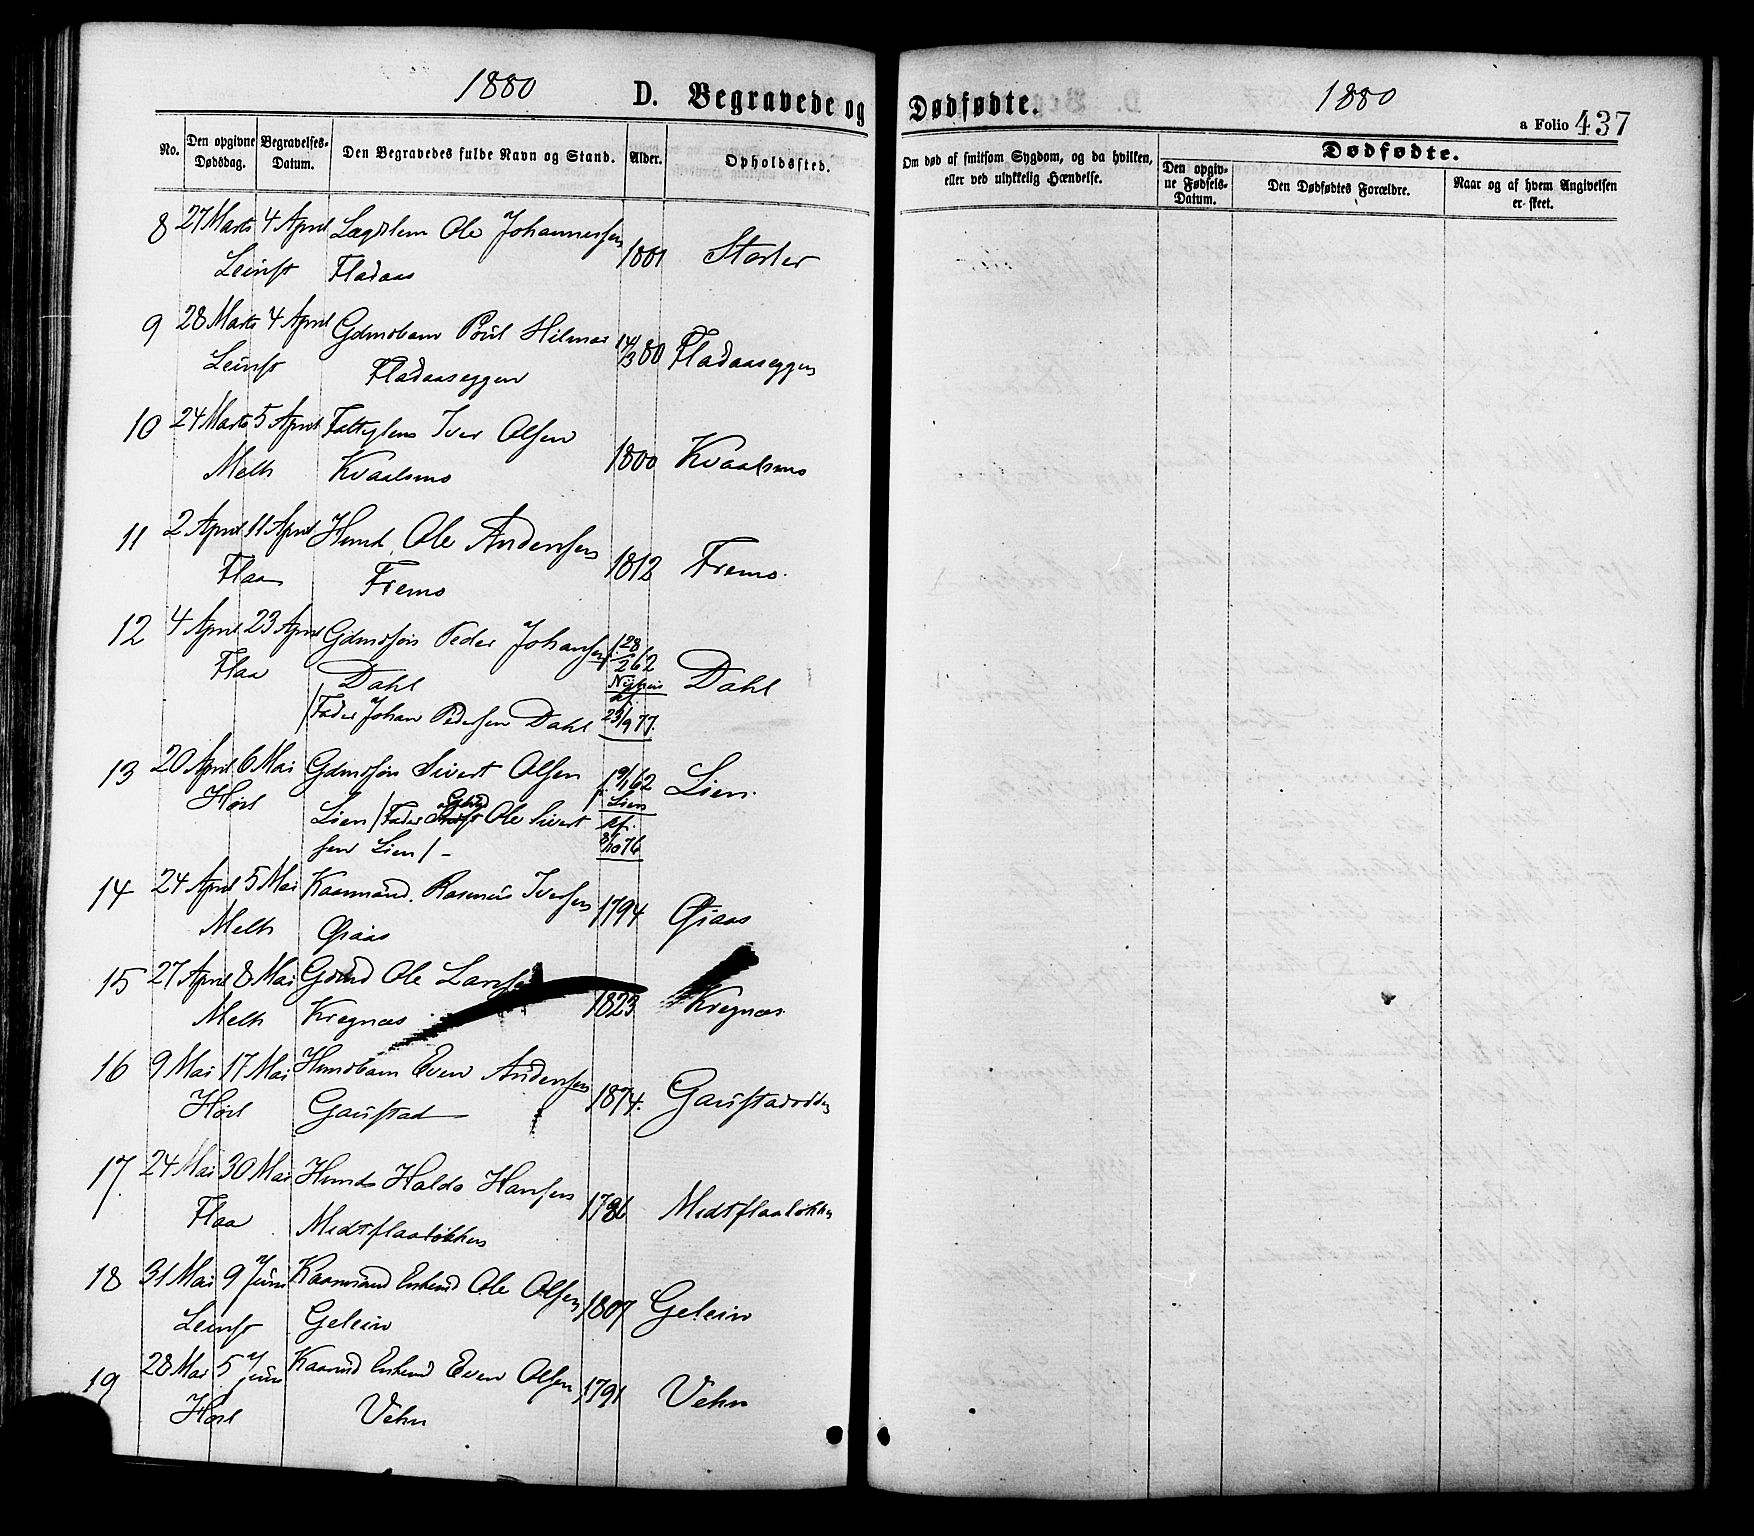 1880
D. Begravede og
Dødfødte.
1880
a Folio 437
No.
Den opgivne Dødsdag.
Begravelses-Datum.
Den Begravedes fulde Navn og Stand.
Alder.
Opholdssted.
Om død af smitsom Sygdom, og da hvilken, eller ved ulykkelig Hændelse.
Dødfødte.
Den opgiv-ne Fødsels-Datum.
Den Dødfødtes Forældre.
Naar og af hvem Angivelsen er skeet.
8 27 Marts 4 April Lægdslem Ole Johannessen
Leinst Fladaas 1801
9 28 Marts 4 April Gdmsbarn Poul Hilmar
Leinst Fladaaseggen 14/3 80 Fladaaseggen
10 24 Marts 5 April Iver Olsen
Melh Kvaalsmo 1800 Kvaalsmo
11 2 April 11 April Hmd. Ole Andersen
Flaa Fremo 1812 Fremo.
12 4 April 23 April Gdmdsøn Peder Johansen f. 28/2 62
Flaa Dahl Dahl
/Fader Johan Pedersen Dahl 23/9 77.
13 20 April 6 Mai Gdmdsøn Sivert Olsen f. 9/1 62 Lien.
Hørl Lien /Fader Gbrd Ole Sivert Lien
sen Lien/- kf. 8/10 76
14 24 April 5 Mai Kaarmand. Rasmus Iversen 1794
Melh
15 27 April 8 Mai Gdmd Ole Larsen
Melh Kregnæs 1823 Kregnæs.
16 9 Mai 17 Mai Hmdsbarn Even Andersen
Hørl Gaustad 1874.
17 24 Mai 30 Mai Hmd Haldo Hansen
Flaa Medtflaaløkken 1786 Medtflaaløkken
18 31 Mai 9 Juni Kaarmand Enkemd Ole Olsen
Leinst Gelein 1807 Gelein
19 28 Mai 5 Juni Kaarmd Enkemd Even Olsen
Hørl Vehn 1791 Vehn